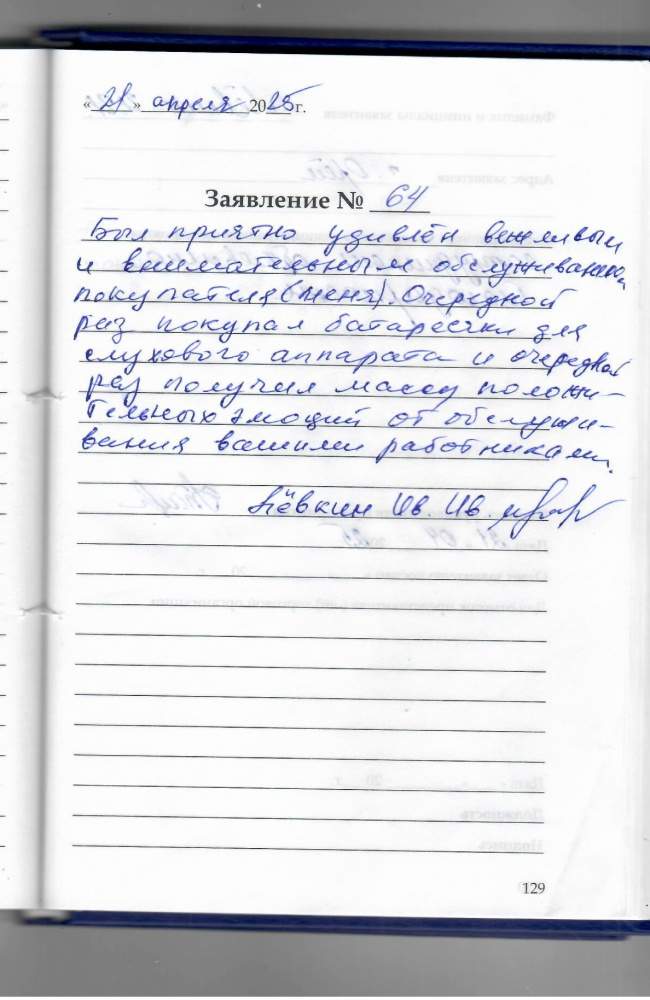 « 21 » апреля 2025 г.
Заявление № 64
Был приятно удивлён вежливым
и внимательным обслуживанием
покупателя (меня). Очередной
раз покупал батареечки для
слухового аппарата и очередной
раз получил массу положи-
тельных эмоций от обслужи-
вания вашими работниками.
Лёвкин Ив. Ив.
129